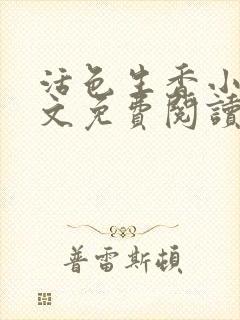 活色生香小
文免費閱讀
普雷斯頓